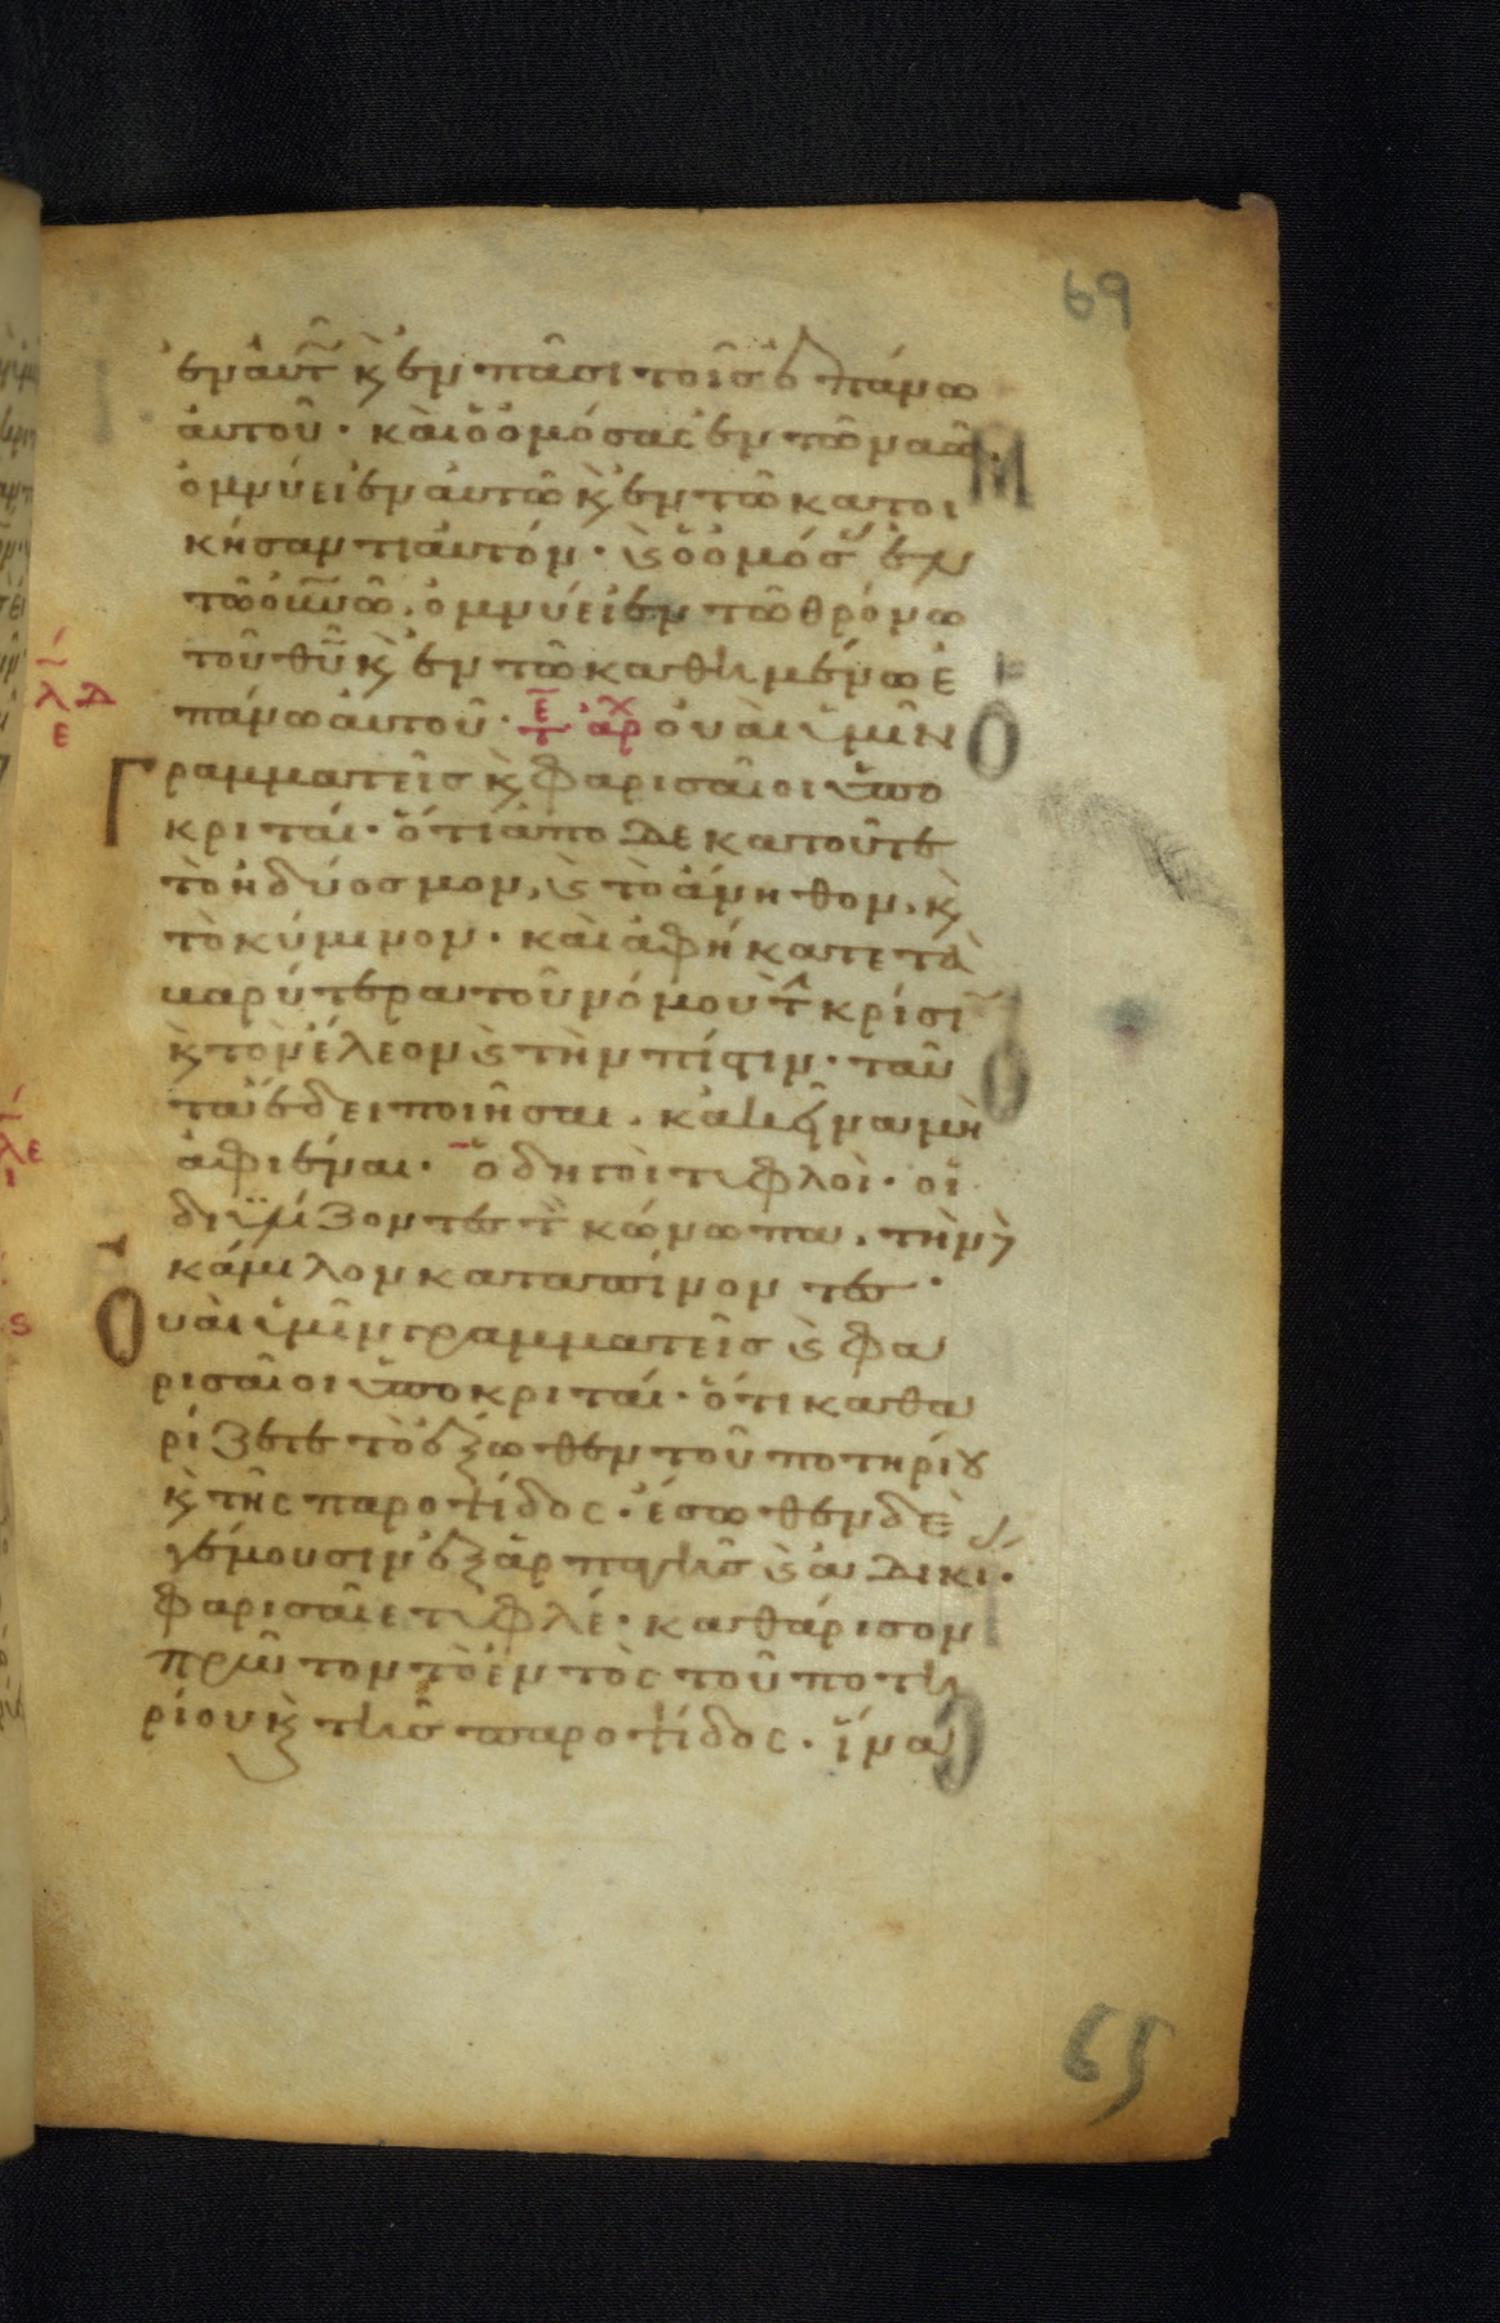 69
ἐν ἀυτ῀ κ̀ ἐν πᾶσι τοῖς ἐπάνω
ἀυτοῦ· κὰι ὁ ὀμόσας ἐν τῶ ναῶ.
ὀμνύει ἐν ἀυτῶ κ̀ ἐν τῶ κατοι
κήσαντι ἀυτόν· ϛ̀ ὁ ὀμόσ ἐν
τῶ ὀυ̅νῶ. ὀμνύει ἐν τῶ θρόνω
τοῦ θυ̅ κ̀ ἐν τῶ καθημένω ἐ
πάνω ἀυτοῦ· ε̅τ ἀρχ ὀυὰι ὑμῖν
Γραμματεῖς κ̀ φαρισαῖοι ὑπο
κριταί· ὅτι ἀποδεκατοῦτε
τὸ ἡδύοσμον, ϛ̀ τὸ ἄνηθον, κ̀
τὸ κύμινον· κὰι ἀφήκατε τὰ
βαρύτερα τοῦ νόμου τ̂ κρίσι
κ̀ τὸν ἔλεον ϛ̀ τὴν πίστιν· ταῦ
τα ἔδει ποιῆσαι. κἀκεῖνα μὴ
ἀφιέναι· ὁδηγοὶ τυφλοὶ· οἱ
διϋλίζοντες τ̀ κώνωπα, τὴν
κάμιλον καταπίνοντες·
Ουὰι ὑμῖν γραμματεῖς ϛ̀ φα
ρισαῖοι ὑποκριταί· ὅτι καθα
ρίζετε τὸ ἔξωθεν τοῦ ποτηρίου
κ̀ τῆς παροψίδος· ἔσωθεν δὲ
γέμουσιν ἐξ ἁρπαγῆς ϛ̀ ἀδικί·
φαρισαῖε τυφλέ· καθάρισον
πρῶτον τὸ ἐντὸς τοῦ ποτη
ρίου κ̀ τῆς παροψίδος· ἵνα
λδ
ε
λε
ι
65